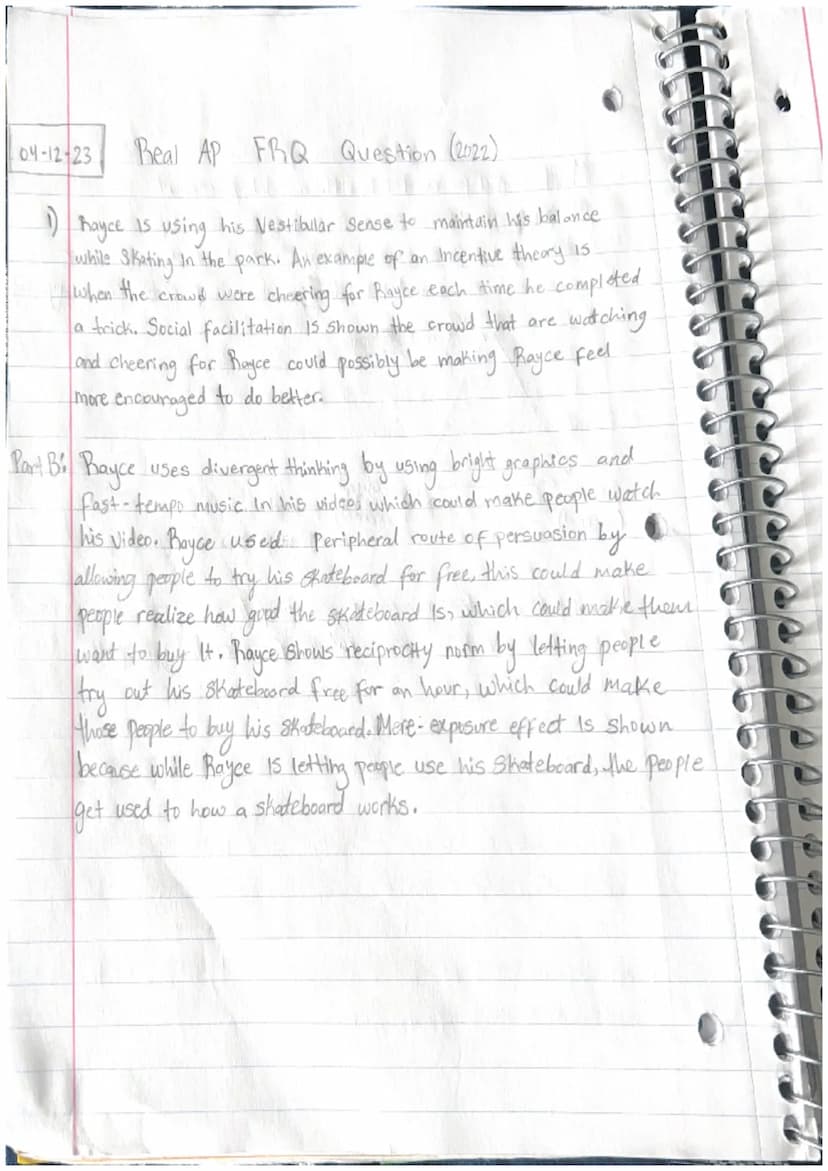 04-12-23 Real AP FRQ Question (2022)
1) Rayce is using his Vestibular Sense to maintain his balance
while Skating in the park. An example of an Incentive theory is
when the crowd were cheering for Rayce each time he completed
a trick. Social facilitation is shown the crowd that are watching
and cheering for Rayce could possibly be making Rayce feel
more encouraged to do better.
Part B: Rayce uses divergent thinking by using bright graphics and
fast-tempo music in his videos which could make people watch
his video. Rayce used Peripheral route of persuasion by
allowing people to try his skateboard for free, this could make
people realize how good the skateboard is, which could make them
want to buy it. Rayce shows reciprocity norm by letting people
try out his skateboard free for an hour, which could make
those people to buy his skateboard. Mere-exposure effect is shown
because while Rayce is letting people use his Skateboard, the people
get used to how a skateboard works.